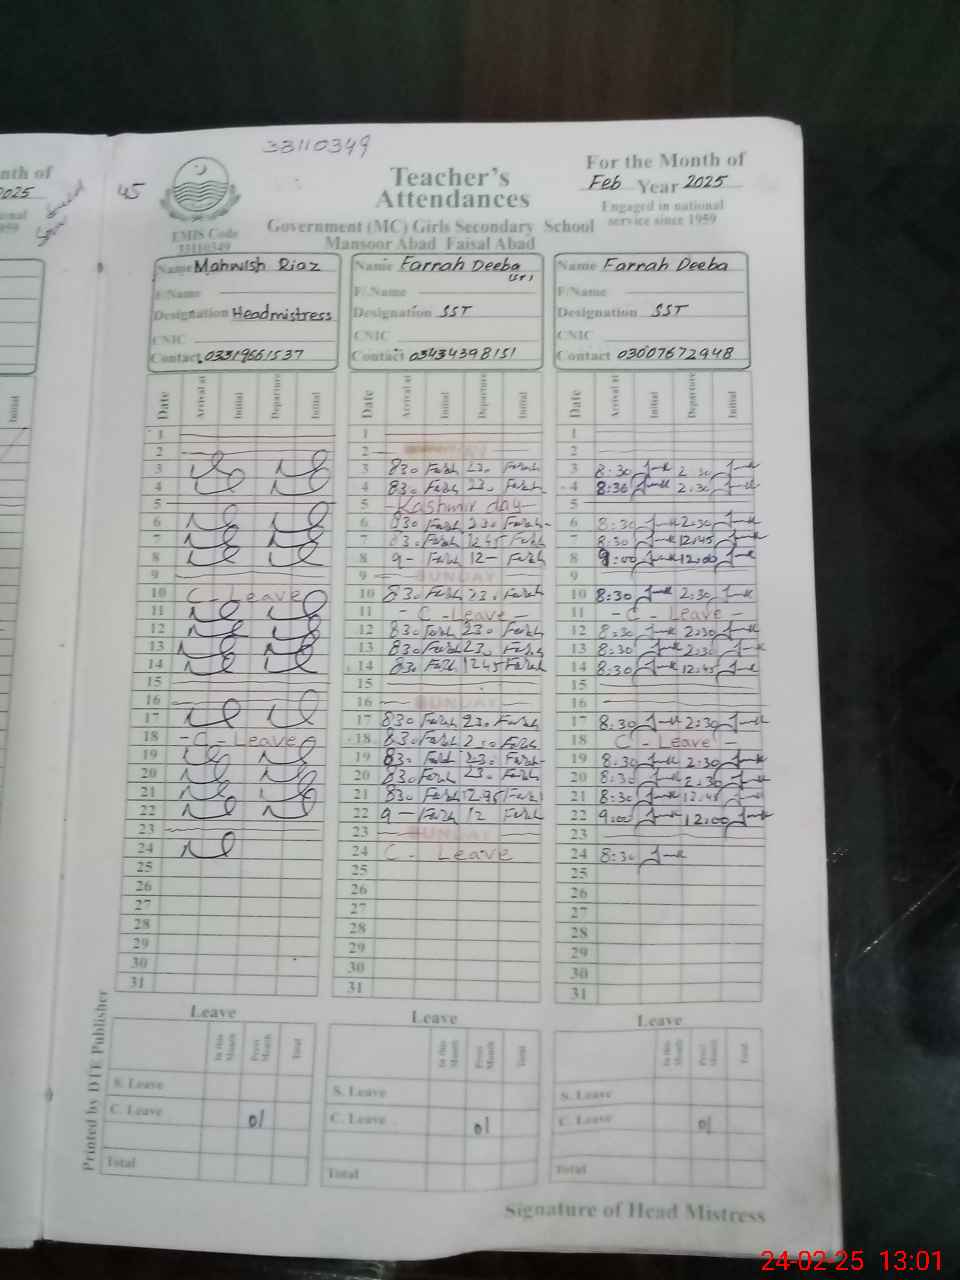 33110349
45
Teacher's
Attendances
For the Month of
Feb Year 2025
Engaged in national
service since 1959
EMIS Code
33110349
Government (MC) Girls Secondary School
Mansoor Abad Faisal Abad
nth of
2025
Name Mahwish Riaz
F/Name
Designation Headmistress
CNIC
Contact 03319661537
Name Farrah Deeba
F/Name
Designation SST
CNIC
Contact 03434398151
Name Farrah Deeba
F/Name
Designation SST
CNIC
Contact 03007672948
Initial
Date Arrival at Initial Departure Initial
Date Arrival at Initial Departure Initial
Date Arrival at Initial Departure Initial
1 1 1
2 2 SUNDAY 2
3 3 830 Farah 230 Farah 3 8:30 2:30
4 4 830 Farah 230 Farah 4 8:30 2:30
5 5 Kashmir day 5
6 6 830 Farah 230 Farah 6 8:30 2:30
7 7 830 Farah 1245 Farah 7 8:30 12:45
8 8 9- Farah 12- Farah 8 9:00 12:00
9 9 SUNDAY 9
10 C-Leave 10 830 Farah 230 Farah 10 8:30 2:30
11 11 - C-Leave 11 - C - Leave -
12 12 830 Farah 230 Farah 12 8:30 2:30
13 13 830 Farah 230 Farah 13 8:30 2:30
14 14 830 Farah 1245 Farah 14 8:30 12:45
15 15 15
16 16 SUNDAY 16
17 17 830 Farah 230 Farah 17 8:30 2:30
18 - C - Leave 18 830 Farah 230 Farah 18 C - Leave -
19 19 830 Farah 230 Farah 19 8:30 2:30
20 20 830 Farah 230 Farah 20 8:30 2:30
21 21 830 Farah 1245 Farah 21 8:30 12:45
22 22 9- Farah 12 Farah 22 9:00 12:00
23 23 SUNDAY 23
24 24 C - Leave 24 8:30
25 25 25
26 26 26
27 27 27
28 28 28
29 29 29
30 30 30
31 31 31
Leave Leave Leave
In this Month Previ Month Total
In this Month Previ Month Total
In this Month Previ Month Total
S. Leave S. Leave S. Leave
C. Leave 01 C. Leave 01 C. Leave 01
Total Total Total
Printed by DTE Publisher
Signature of Head Mistress
24-02-25 13:01